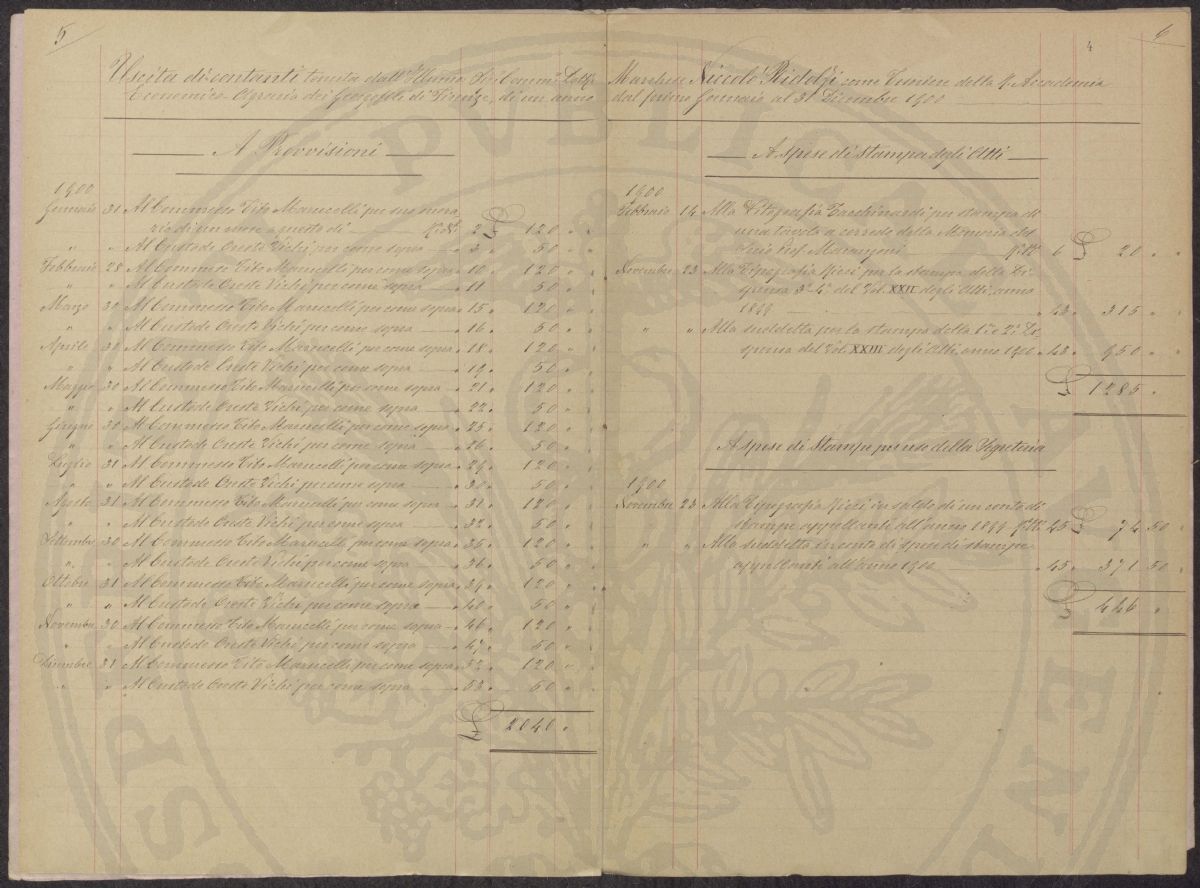 5
Uscita di contanti tenuta dall' Illmo Sig. Comm.
Economico-Agraria dei Georgofili di Firenze, di un anno
A Provvisioni
1900
Gennaio 31 Al Commesso Tito Marucelli per suo onora
rio di un mese a questo dì 2 £ 120 "
" " Al Custode Oreste Vichi per come sopra " 3 " 50 "
Febbraio 28 Al Commesso Tito Marucelli per come sopra " 10 " 120 "
" " Al Custode Oreste Vichi per come sopra " 11 " 50 "
Marzo 30 Al Commesso Tito Marucelli per come sopra " 15 " 120 "
" " Al Custode Oreste Vichi per come sopra " 16 " 50 "
Aprile 30 Al Commesso Tito Marucelli per come sopra " 18 " 120 "
" " Al Custode Oreste Vichi per come sopra " 19 " 50 "
Maggio 30 Al Commesso Tito Marucelli per come sopra " 21 " 120 "
" " Al Custode Oreste Vichi per come sopra " 22 " 50 "
Giugno 30 Al Commesso Tito Marucelli per come sopra " 25 " 120 "
" " Al Custode Oreste Vichi per come sopra " 26 " 50 "
Luglio 31 Al Commesso Tito Marucelli per come sopra " 29 " 120 "
" " Al Custode Oreste Vichi per come sopra " 30 " 50 "
Agosto 31 Al Commesso Tito Marucelli per come sopra " 31 " 120 "
" " Al Custode Oreste Vichi per come sopra " 32 " 50 "
Settembre 30 Al Commesso Tito Marucelli per come sopra " 35 " 120 "
" " Al Custode Oreste Vichi per come sopra " 36 " 50 "
Ottobre 31 Al Commesso Tito Marucelli per come sopra " 39 " 120 "
" " Al Custode Oreste Vichi per come sopra " 40 " 50 "
Novembre 30 Al Commesso Tito Marucelli per come sopra " 46 " 120 "
" " Al Custode Oreste Vichi per come sopra " 47 " 50 "
Dicembre 31 Al Commesso Tito Marucelli per come sopra " 52 " 120 "
" " Al Custode Oreste Vichi per come sopra " 53 " 50 "
£ 2040 "
4
6
Marchese Niccolò Ridolfi come Tesoriere della R. Accademia
dal primo Gennaio al 31 Dicembre 1900
A spese di stampa degli Atti
1900
Febbraio 14 Alla Litografia Tacchinardi per stampa di
una tavola a corredo della Memoria del
Socio Prof. Marangoni 6 £ 20 "
Novembre 23 Alla Tipografia Ricci per la stampa della Di-
spensa 3a 4a del Vol. XXII degli Atti, anno
1899 " 43 " 315 "
" " Alla suddetta per la stampa della 1a e 2a Di-
spensa del Vol. XXIII degli Atti, anno 1900 " 43 " 950 "
£ 1285 "
A spese di Stampe per uso della Segreteria
1900
Novembre 23 Alla Tipografia Ricci in saldo di un conto di
stampe appellante all'anno 1899 45 £ 74 50
" " Alla suddetta in conto di spese di stampe
appellanti all'anno 1900 " 45 " 371 50
£ 446 "